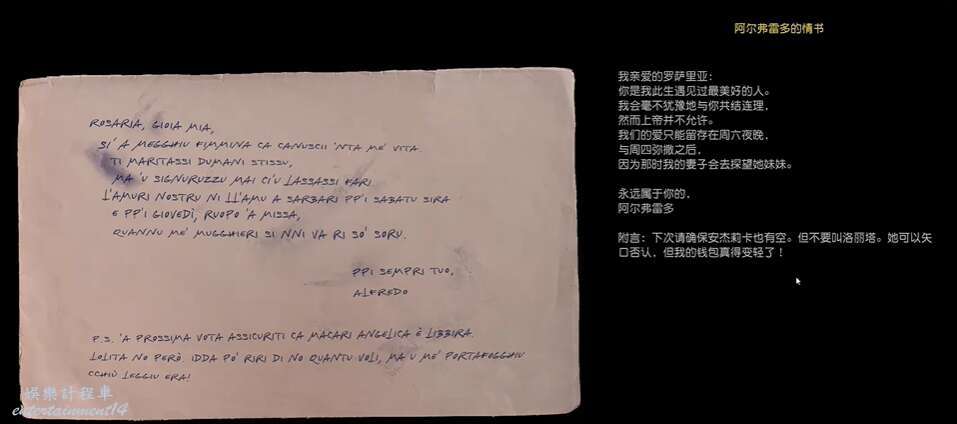 阿尔弗雷多的情书
ROSARIA, GIOIA MIA,
SI' A MEGGHIU FIMMINA CA CANUSCII 'NTA ME' VITA.
TI MARITASSI DUMANI STISSU,
MA 'U SIGNURUZZU MAI CI'U LASSASSI FARI.
L'AMURI NOSTRU NI LL'AMU A SARBARI PP'I SABATU SIRA
E PP'I GIOVEDÌ, RUOPO 'A MISSA,
QUANNU ME' MUGGHIERI SI NNI VA RI SO' SORU.
PPI SEMPRI TUO,
ALFREDO
P.S. 'A PROSSIMA VOTA ASSICURITI CA MACARI ANGELICA È LIBBIRA.
LOLITA NO PERÒ. IDDA PO' RIRI DI NO QUANTU VOLI, MA U ME' PORTAFOGGHIU
CCHIÙ LEGGIU ERA!
我亲爱的罗萨里亚：
你是我此生遇见过最美好的人。
我会毫不犹豫地与你共结连理，
然而上帝并不允许。
我们的爱只能留存在周六夜晚，
与周四弥撒之后，
因为那时我的妻子会去探望她妹妹。
永远属于你的，
阿尔弗雷多
附言：下次请确保安杰莉卡也有空。但不要叫洛丽塔。她可以矢
口否认，但我的钱包真得变轻了！
娱樂計程車
entertainment14